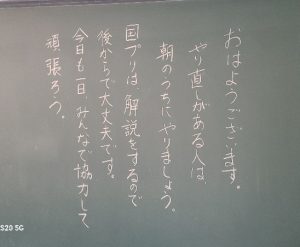 おはようございます。
やり直しがある人は
朝のうちにやりましょう。
国プリは解説をするので
後からで大丈夫です。
今日も一日、みんなで協力して
頑張ろう。
S20 5G